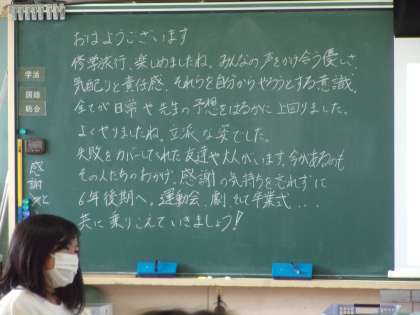 おはようございます
修学旅行、楽しめましたね。みんなの声をかけ合う優しさ、
気配りと責任感、それらを自分からやろうとする意識、
全てが日常や先生の予想をはるかに上回りました。
よくやりましたね。立派な姿でした。
失敗をカバーしてくれた友達や大人がいます。今があるのも
その人たちのおかげ。感謝の気持ちを忘れずに
6年後期へ。運動会、劇 そして卒業式...
共に乗りこえていきましょう!
学活
国語
総合
感謝